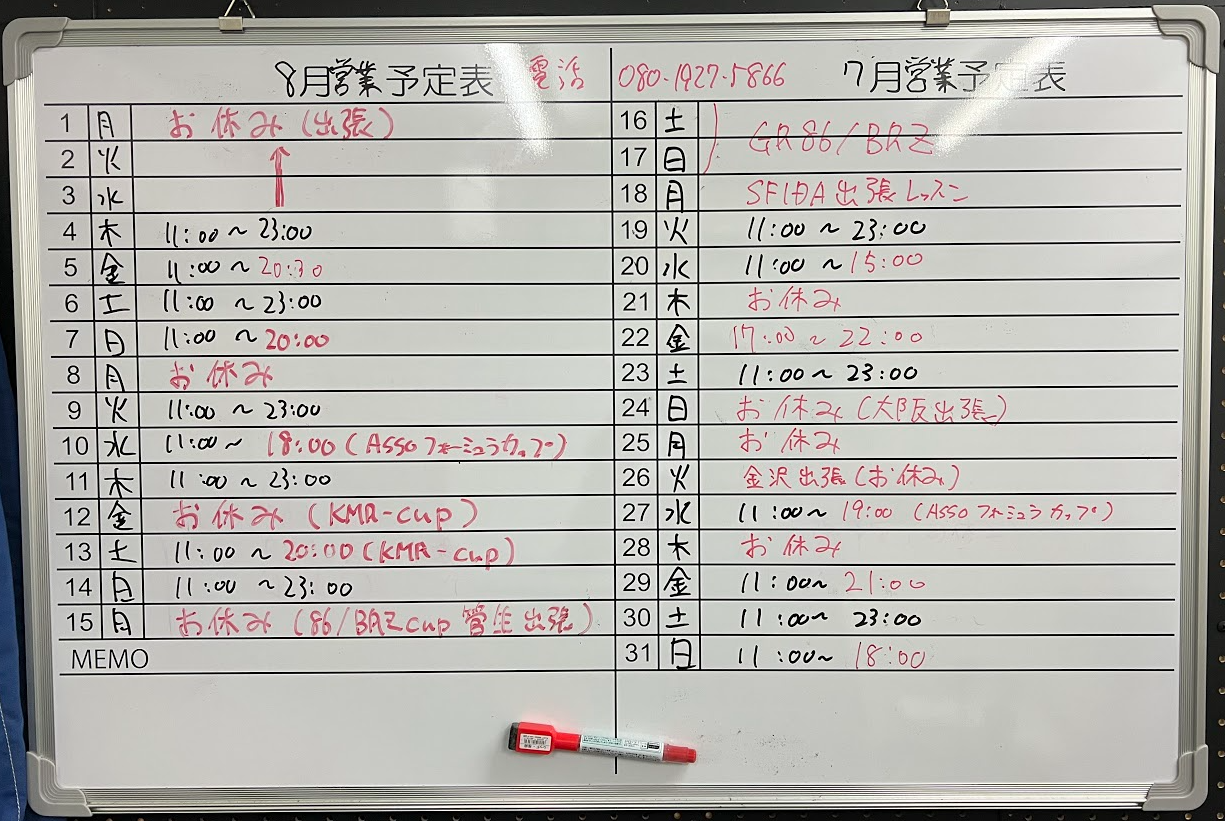 8月営業予定表 電話 080-1927-5866 7月営業予定表
1 月 お休み(出張)
2 火 ↑
3 水
4 木 11:00～23:00
5 金 11:00～20:30
6 土 11:00～23:00
7 日 11:00～20:00
8 月 お休み
9 火 11:00～23:00
10 水 11:00～18:00(Assoフォーミュラカップ)
11 木 11:00～23:00
12 金 お休み(KMR-cup)
13 土 11:00～20:00(KMR-cup)
14 日 11:00～23:00
15 月 お休み(86/BRZcup 菅生出張)
MEMO
16 土
17 日 GR86/BRZ
18 月 SFIDA出張レッスン
19 火 11:00～23:00
20 水 11:00～15:00
21 木 お休み
22 金 17:00～22:00
23 土 11:00～23:00
24 日 お休み(大阪出張)
25 月 お休み
26 火 金沢出張(お休み)
27 水 11:00～19:00(Assoフォーミュラカップ)
28 木 お休み
29 金 11:00～21:00
30 土 11:00～23:00
31 日 11:00～18:00